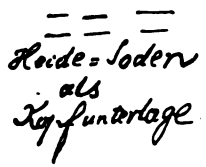 Heide=Soden
als
Kopfunterlage